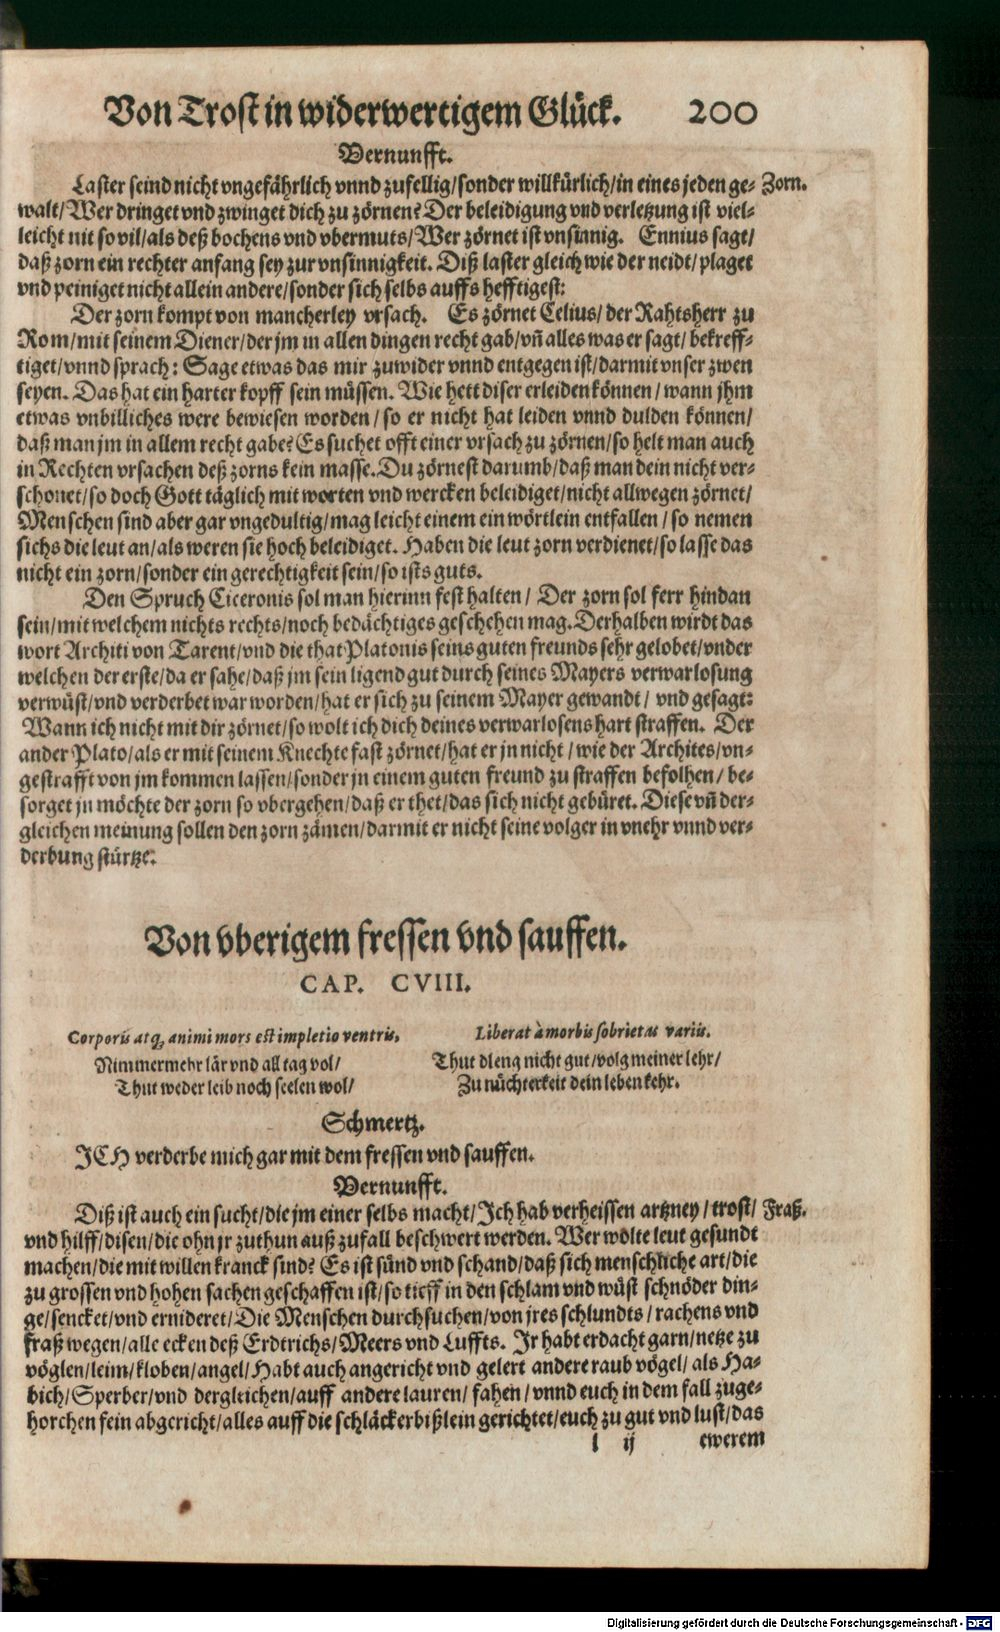 Von Trost in widerwertigem Glück. 200
Vernunfft.
Laster seind nicht vngefährlich vnnd zufellig/sonder willkürlich/in eines jeden ge- Zorn.
walt/Wer dringet vnd zwinget dich zu zörnen? Der beleidigung vnd verletzung ist viel-
leicht nit so vil/als deß bochens vnd vbermuts/Wer zörnet ist vnsinnig. Ennius sagt/
daß zorn ein rechter anfang sey zur vnsinnigkeit. Diß laster gleich wie der neidt/plaget
vnd peiniget nicht allein andere/sonder sich selbs auffs hefftigest:
Der zorn kompt von mancherley vrsach. Es zörnet Celius/der Rahtsherr zu
Rom/mit seinem Diener/der jm in allen dingen recht gab/vñ alles was er sagt/bekreff-
tiget/vnnd sprach: Sage etwas das mir zuwider vnnd entgegen ist/darmit vnser zwen
seyen. Das hat ein harter kopff sein müssen. Wie hett diser erleiden können/wann jhm
etwas vnbilliches were bewiesen worden/so er nicht hat leiden vnnd dulden können/
daß man jm in allem recht gabe? Es suchet offt einer vrsach zu zörnen/so helt man auch
in Rechten vrsachen deß zorns kein masse. Du zörnest darumb/daß man dein nicht ver-
schonet/so doch Gott täglich mit worten vnd wercken beleidiget/nicht allwegen zörnet/
Menschen sind aber gar vngedultig/mag leicht einem ein wörtlein entfallen/so nemen
sichs die leut an/als weren sie hoch beleidiget. Haben die leut zorn verdienet/so lasse das
nicht ein zorn/sonder ein gerechtigkeit sein/so ists guts.
Den Spruch Ciceronis sol man hierinn fest halten/Der zorn sol ferr hindan
sein/mit welchem nichts rechts/noch bedächtiges geschehen mag. Derhalben wirdt das
wort Architi von Tarent/vnd die that Platonis seins guten freunds sehr gelobet/vnder
welchen der erste/da er sahe/daß jm sein ligend gut durch seines Mayers verwarlosung
verwüst/vnd verderbet war worden/hat er sich zu seinem Mayer gewandt/vnd gesagt:
Wann ich nicht mit dir zörnet/so wolt ich dich deines verwarlosens hart straffen. Der
ander Plato/als er mit seinem Knechte fast zörnet/hat er jn nicht/wie der Archites/vn-
gestrafft von jm kommen lassen/sonder jn einem guten freund zu straffen befolhen/be-
sorget jn möchte der zorn so vbergehen/daß er thet/das sich nicht gebüret. Diese vñ der-
gleichen meinung sollen den zorn zämen/darmit er nicht seine volger in vnehr vnnd ver-
derbung stürtze.
Von vberigem fressen vnd sauffen.
CAP. CVIII.
Corporis atq; animi mors est impletio ventris.
Nimmermehr lär vnd all tag vol/
Thut weder leib noch seelen wol/
Liberat à morbis sobrietas variis.
Thut dleng nicht gut/volg meiner lehr/
Zu nüchterkeit dein leben kehr.
Schmertz.
ICH verderbe mich gar mit dem fressen vnd sauffen.
Vernunfft.
Diß ist auch ein sucht/die jm einer selbs macht/Ich hab verheissen artzney/trost/ Fraß.
vnd hilff/disen/die ohn jr zuthun auß zufall beschwert werden. Wer wolte leut gesundt
machen/die mit willen kranck sind? Es ist sünd vnd schand/daß sich menschliche art/die
zu grossen vnd hohen sachen geschaffen ist/so tieff in den schlam vnd wüst schnöder din-
ge/sencket/vnd ernideret/Die Menschen durchsuchen/von jres schlundts/rachens vnd
fraß wegen/alle ecken deß Erdtrichs/Meers vnd Luffts. Ir habt erdacht garn/netze zu
vöglen/leim/kloben/angel/Habt auch angericht vnd gelert andere raub vögel/als Ha-
bich/Sperber/vnd dergleichen/auff andere lauren/fahen/vnnd euch in dem fall zuge-
horchen fein abgericht/alles auff die schläckerbißlein gerichtet/euch zu gut vnd lust/das
l ij ewerem
Digitalisierung gefördert durch die Deutsche Forschungsgemeinschaft - DFG